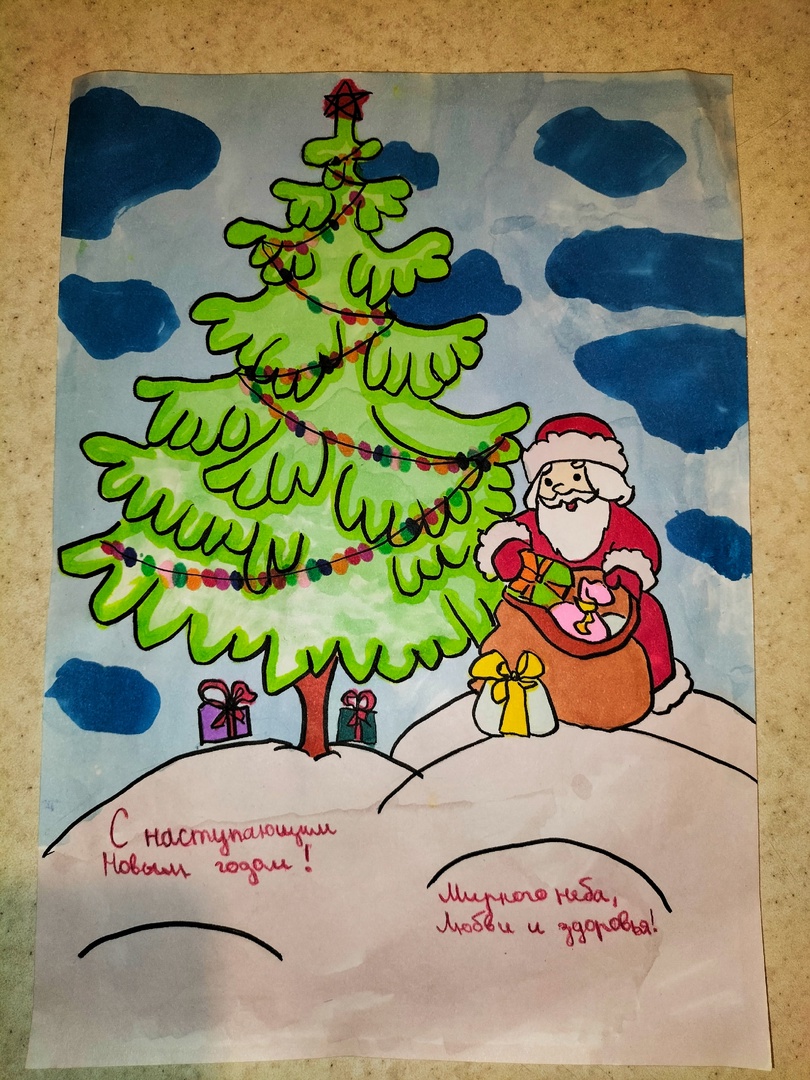 С наступающим
Новым годом!
Мирного неба,
Любви и здоровья!